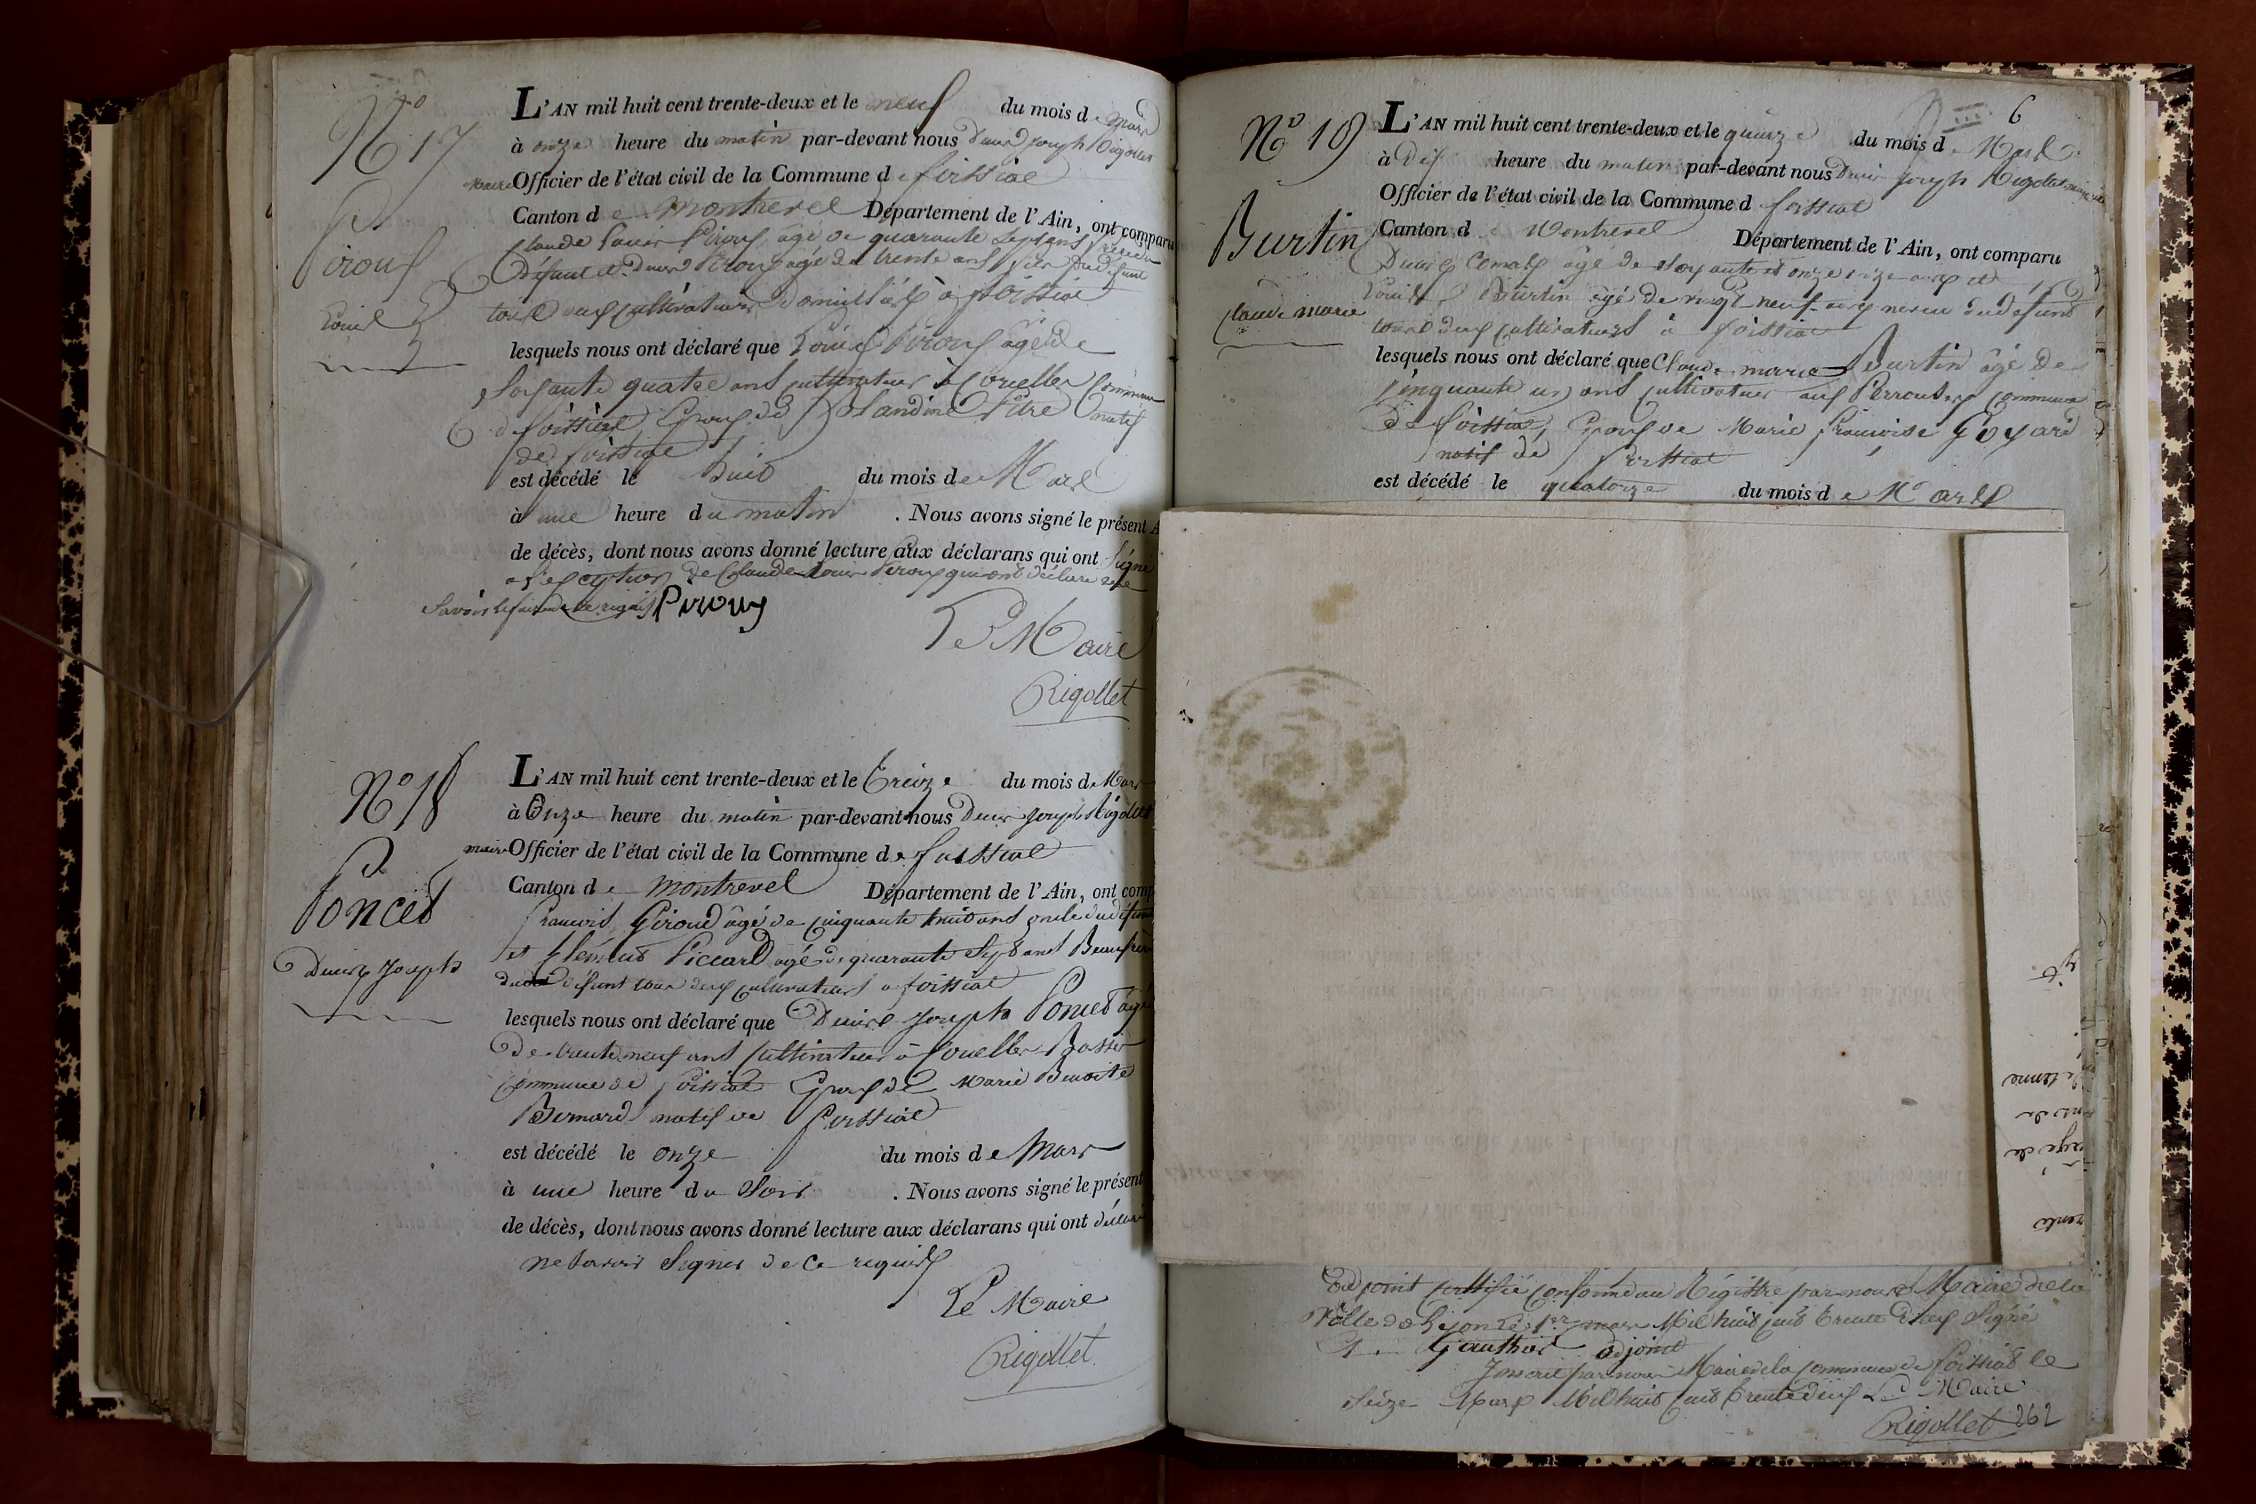 N° 17
Piroux
Louis
L'AN mil huit cent trente-deux et le neuf du mois de Mars
à onze heure du matin par-devant nous Denis Joseph Rigollet
maire Officier de l'état civil de la Commune de foissiat
Canton de Montrevel Département de l'Ain, ont comparu
Claude Louis Piroux âgé de quarante sept ans
défunt et Denis Piroux agé de trente ans fils du défunt
tous deux cultivateurs domiciliés à foissiat
lesquels nous ont déclaré que Louis Piroux âgé de
soixante quatre ans cultivateur à Cornelles Commune
de foissiat Epoux de Blandine Pitre natif
de foissiat
est décédé le huit du mois de Mars
à une heure du matin . Nous avons signé le présent A
de décès, dont nous avons donné lecture aux déclarans qui ont signé
a l'exception de Claude Louis Piroux qui ont déclaré ne
savoir le faire de ce requis Piroux
Le Maire
Rigollet
N° 18
Poncet
Denis Joseph
L'AN mil huit cent trente-deux et le treize du mois de Mars
à Onze heure du matin par-devant nous Denis Joseph Rigollet
maire Officier de l'état civil de la Commune de foissiat
Canton de Montrevel Département de l'Ain, ont comp
francois Giroud âgé de cinquante huit ans oncle du défunt
et Clément Piccard agé de quarante sept ans Beaufrère
dudit défunt tous deux cultivateurs a foissiat
lesquels nous ont déclaré que Denis Joseph Poncet âgé
de trente neuf ans cultivateur à Cornelles Basses
commune de foissiat Epoux de Marie Benoite
Bernard natif de foissiat
est décédé le onze du mois de Mars
à une heure du Soir . Nous avons signé le présent
de décès, dont nous avons donné lecture aux déclarans qui ont déclaré
ne savoir signer de ce requis
Le Maire
Rigollet
6
N° 19
Burtin
Claude marie
L'AN mil huit cent trente-deux et le quinze du mois de Mars
à dix heure du matin par-devant nous Denis Joseph Rigollet maire
Officier de l'état civil de la Commune d foissiat
Canton de Montrevel Département de l'Ain, ont comparu
Denis Comas âgé de soixante et onze ans et
Louis Burtin âgé de vingt neuf ans neveu du defunt
tous deux cultivateurs à foissiat
lesquels nous ont déclaré que Claude marie Burtin âgé de
cinquante un ans cultivateur aux Perrouses commune
de foissiat, Epoux de Marie françoise Goyard
natif de foissiat
est décédé le quatorze du mois de Mars
adjoint certifié conforme au Régistre par nous Maire de la
Ville de Lyon le 1er mars Mil huit cent trente deux Signé
Gauthier adjoint
Inscrit par nous Maire de la commune de foissiat le
Seize Mars Mil huit cent trente deux Le Maire
Rigollet 262